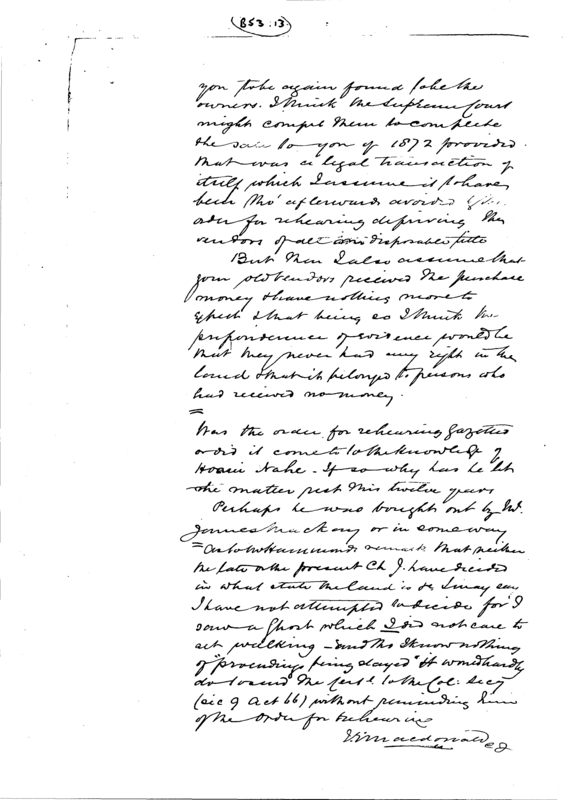 B53.13
you to be again found to be the
owners. I think the Supreme Court
might compel them to complete
the sale to you of 1872 provided
that was a legal transaction of
itself which I assume it to have
been tho' afterwards avoided by the
order for rehearing depriving the
vendors of disposable title
But then I also assume that
your old vendors received the purchase
money & have nothing more to
expect & that being so I think the
preponderance of evidence would be
that they never had any right in the
land & that it belonged to persons who
had received no money.
=
Was the order for rehearing gazetted
or did it come to the knowledge of
Nahe - If so why has he let
the matter rest this twelve years
Perhaps he was bought out by Mr.
James Mackay or in some way
= As to Mr Hammond's remark that neither
the late or the present Ch J. have decided
in what state the land is I may say
I have not attempted to decide for I
saw a Ghost which I did not care to
set walking - and tho I know nothing
of "proceedings being stayed" it would hardly
do to send the to the Col: Secy
(sec 9 Act 66) without reminding him
of the Order for Rehearing
Macdonald CJ